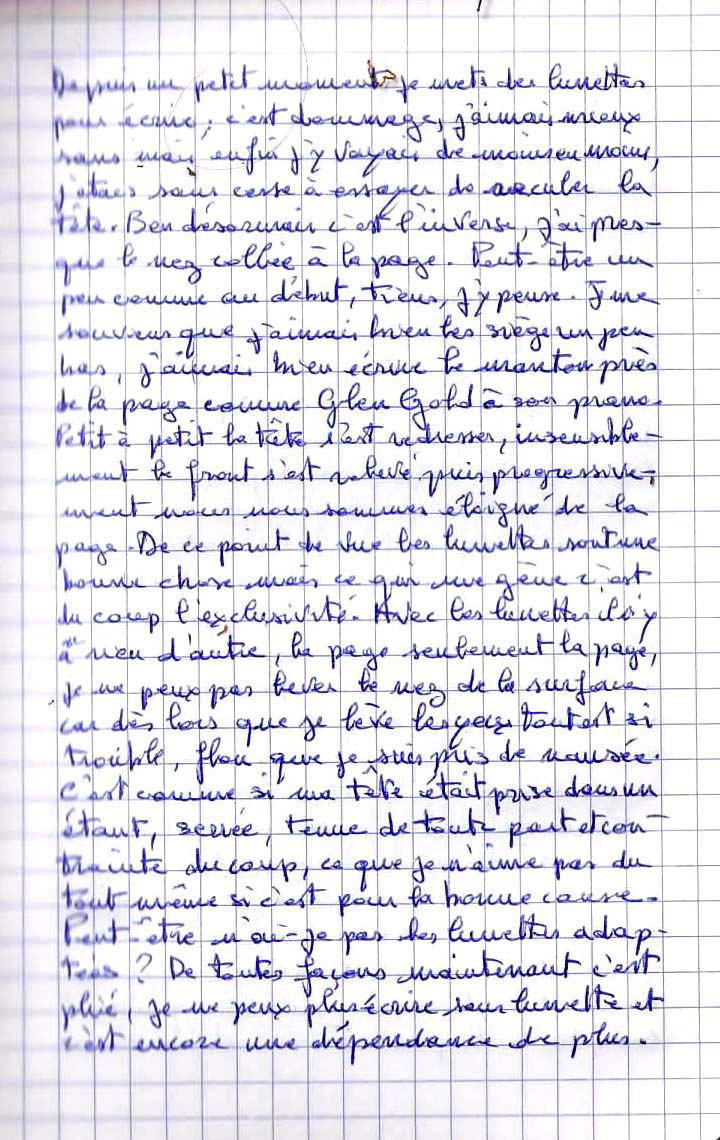 Depuis un petit moment je mets des lunettes
pour écrire, c'est dommage, j'aimais mieux
sans mais enfin j'y voyais de moins en moins,
j'étais sans cesse à essayer de reculer la
tête. Ben désormais c'est l'inverse, j'ai pres-
que le nez collée à la page. Peut-être un
peu comme au début, tiens, j'y pense. J'me
souviens que j'aimais bien les sièges un peu
bas, j'aimais bien écrire le menton près
de la page comme Glen Gold à son piano.
Petit à petit la tête s'est redresser, insensible-
ment le front s'est relevé puis progressive-
ment nous nous sommes éloigné de la
page. De ce point de vue les lunettes sont une
bonne chose mais ce qui me gêne c'est
du coup l'exclusivité. Avec les lunettes il n'y
à rien d'autre, la page seulement la page,
je ne peux pas lever le nez de la surface
car dès lors que je lève les yeux tout est si
trouble, flou que je suis pris de nausée.
C'est comme si ma tête était prise dans un
étaut, serrée, tenue de toute part et con-
trainte du coup, ce que je n'aime pas du
tout même si c'est pour la bonne cause.
Peut-être n'ai-je pas les lunettes adap-
tées ? De toutes façons maintenant c'est
plié, je ne peux plus écrire sans lunette et
c'est encore une dépendance de plus.